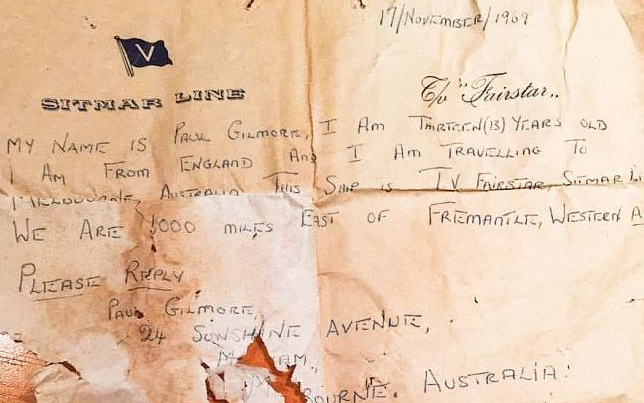 17/NOVEMBER/1969
V
SITMAR LINE
T/v "Fairstar„
MY NAME IS PAUL GILMORE, I AM THIRTEEN(13) YEARS OLD
I AM FROM ENGLAND AND I AM TRAVELLING TO
MELBOURNE, AUSTRALIA THIS SHIP IS T.V FAIRSTAR, SITMAR LI
WE ARE 1000 MILES EAST OF FREMANTLE, WESTERN A
PLEASE REPLY
PAUL GILMORE,
24 SUNSHINE AVENUE,
BOURNE. AUSTRALIA.